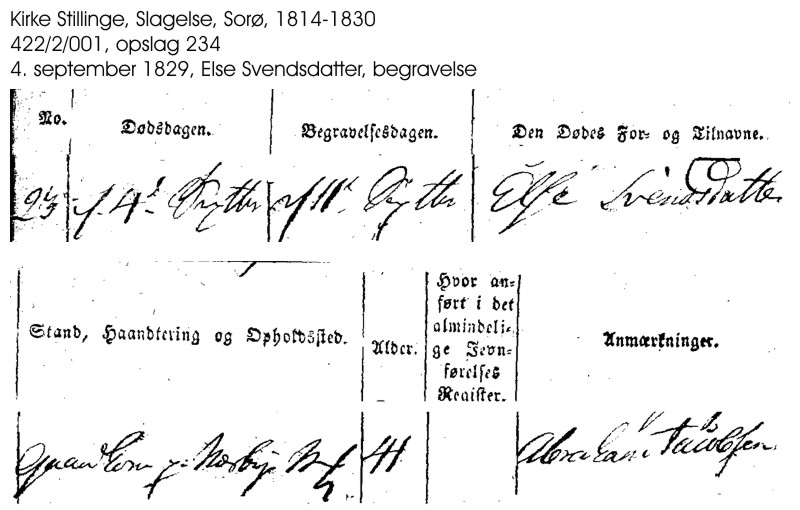 Kirke Stillinge, Slagelse, Sorø, 1814-1830
422/2/001, opslag 234
4. september 1829, Else Svendsdatter, begravelse
No. Dødsdagen. Begravelsesdagen. Den Dødes For- og Tilnavne.
23 4 11 Else Svendsdatter
Stand, Haandtering og Opholdssted. Alder. Hvor an-
ført i det
almindeli-
ge Jevn-
førelses
Register. Anmærkninger.
41 Abraham Jacobsen